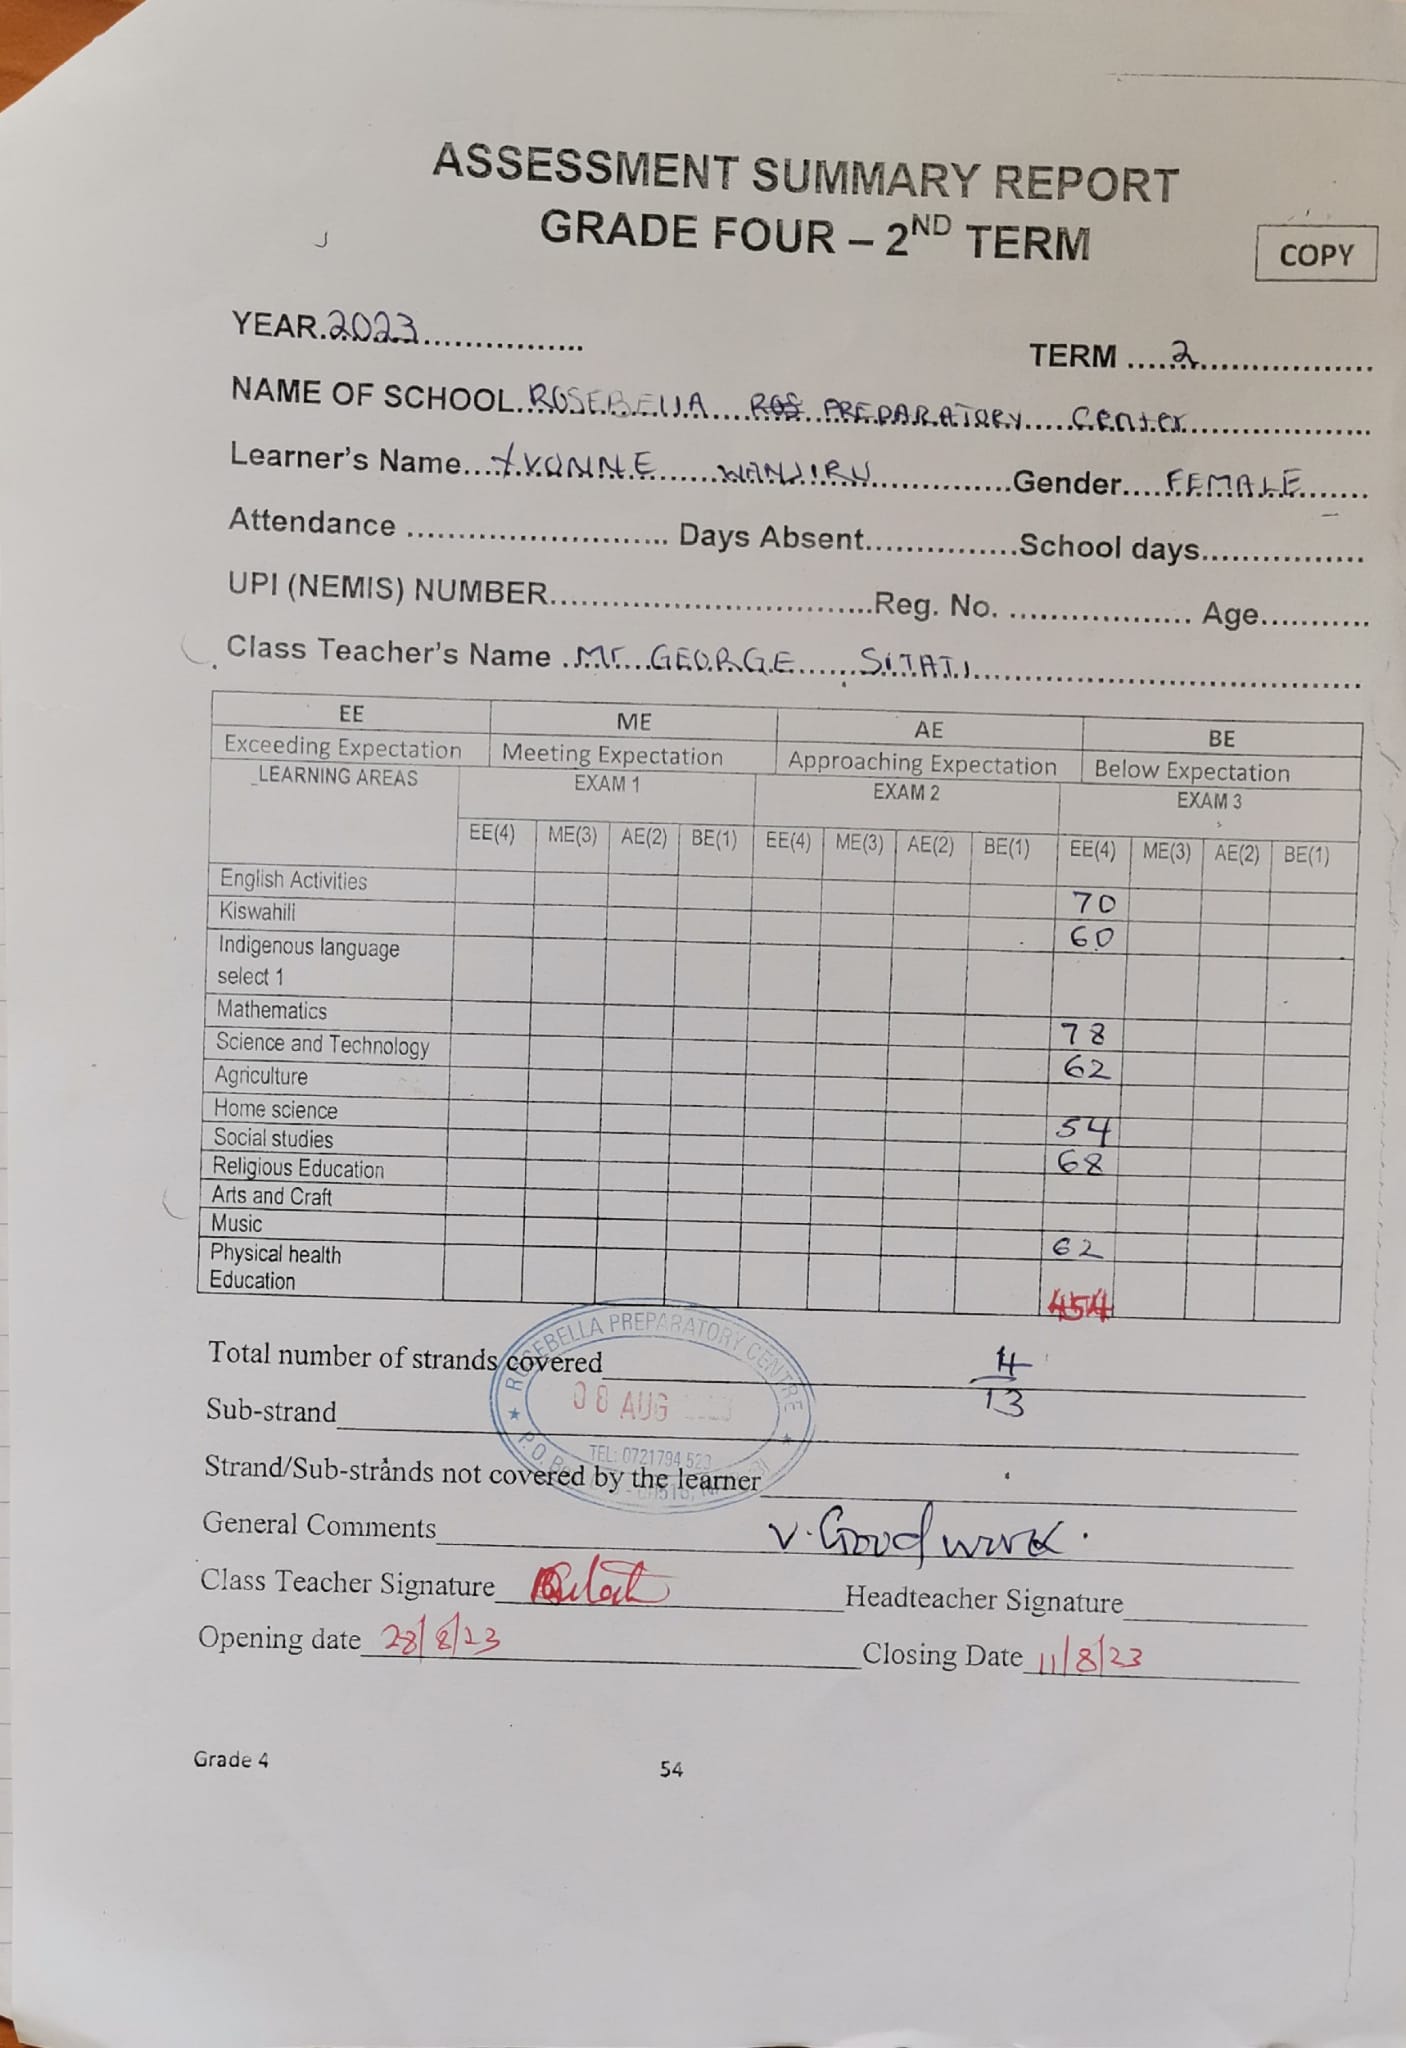 ASSESSMENT SUMMARY REPORT
GRADE FOUR – 2ND TERM
COPY
YEAR.2023................
TERM ....2..................
NAME OF SCHOOL.ROSEBELLA ROS PREPARATORY Center
Learner's Name....YVONNE WANJIRU..............Gender....FEMALE.......
Attendance .......................... Days Absent...............School days................
UPI (NEMIS) NUMBER................................Reg. No. .................. Age...........
Class Teacher's Name .Mr. GEORGE SITATI......................................
EE ME AE BE
Exceeding Expectation Meeting Expectation Approaching Expectation Below Expectation
LEARNING AREAS EXAM 1 EXAM 2 EXAM 3
EE(4) ME(3) AE(2) BE(1) EE(4) ME(3) AE(2) BE(1) EE(4) ME(3) AE(2) BE(1)
English Activities 70
Kiswahili 60
Indigenous language
select 1
Mathematics 78
Science and Technology 62
Agriculture
Home science 54
Social studies 68
Religious Education
Arts and Craft
Music 62
Physical health
Education 454
ROSEBELLA PREPARATORY CENTRE
Total number of strands covered 4
13
08 AUG
Sub-strand
TEL: 0721794 523
P.O. Box
Strand/Sub-strands not covered by the learner
General Comments V. Good work.
Class Teacher Signature Headteacher Signature
Opening date 28/8/23 Closing Date 11/8/23
Grade 4 54